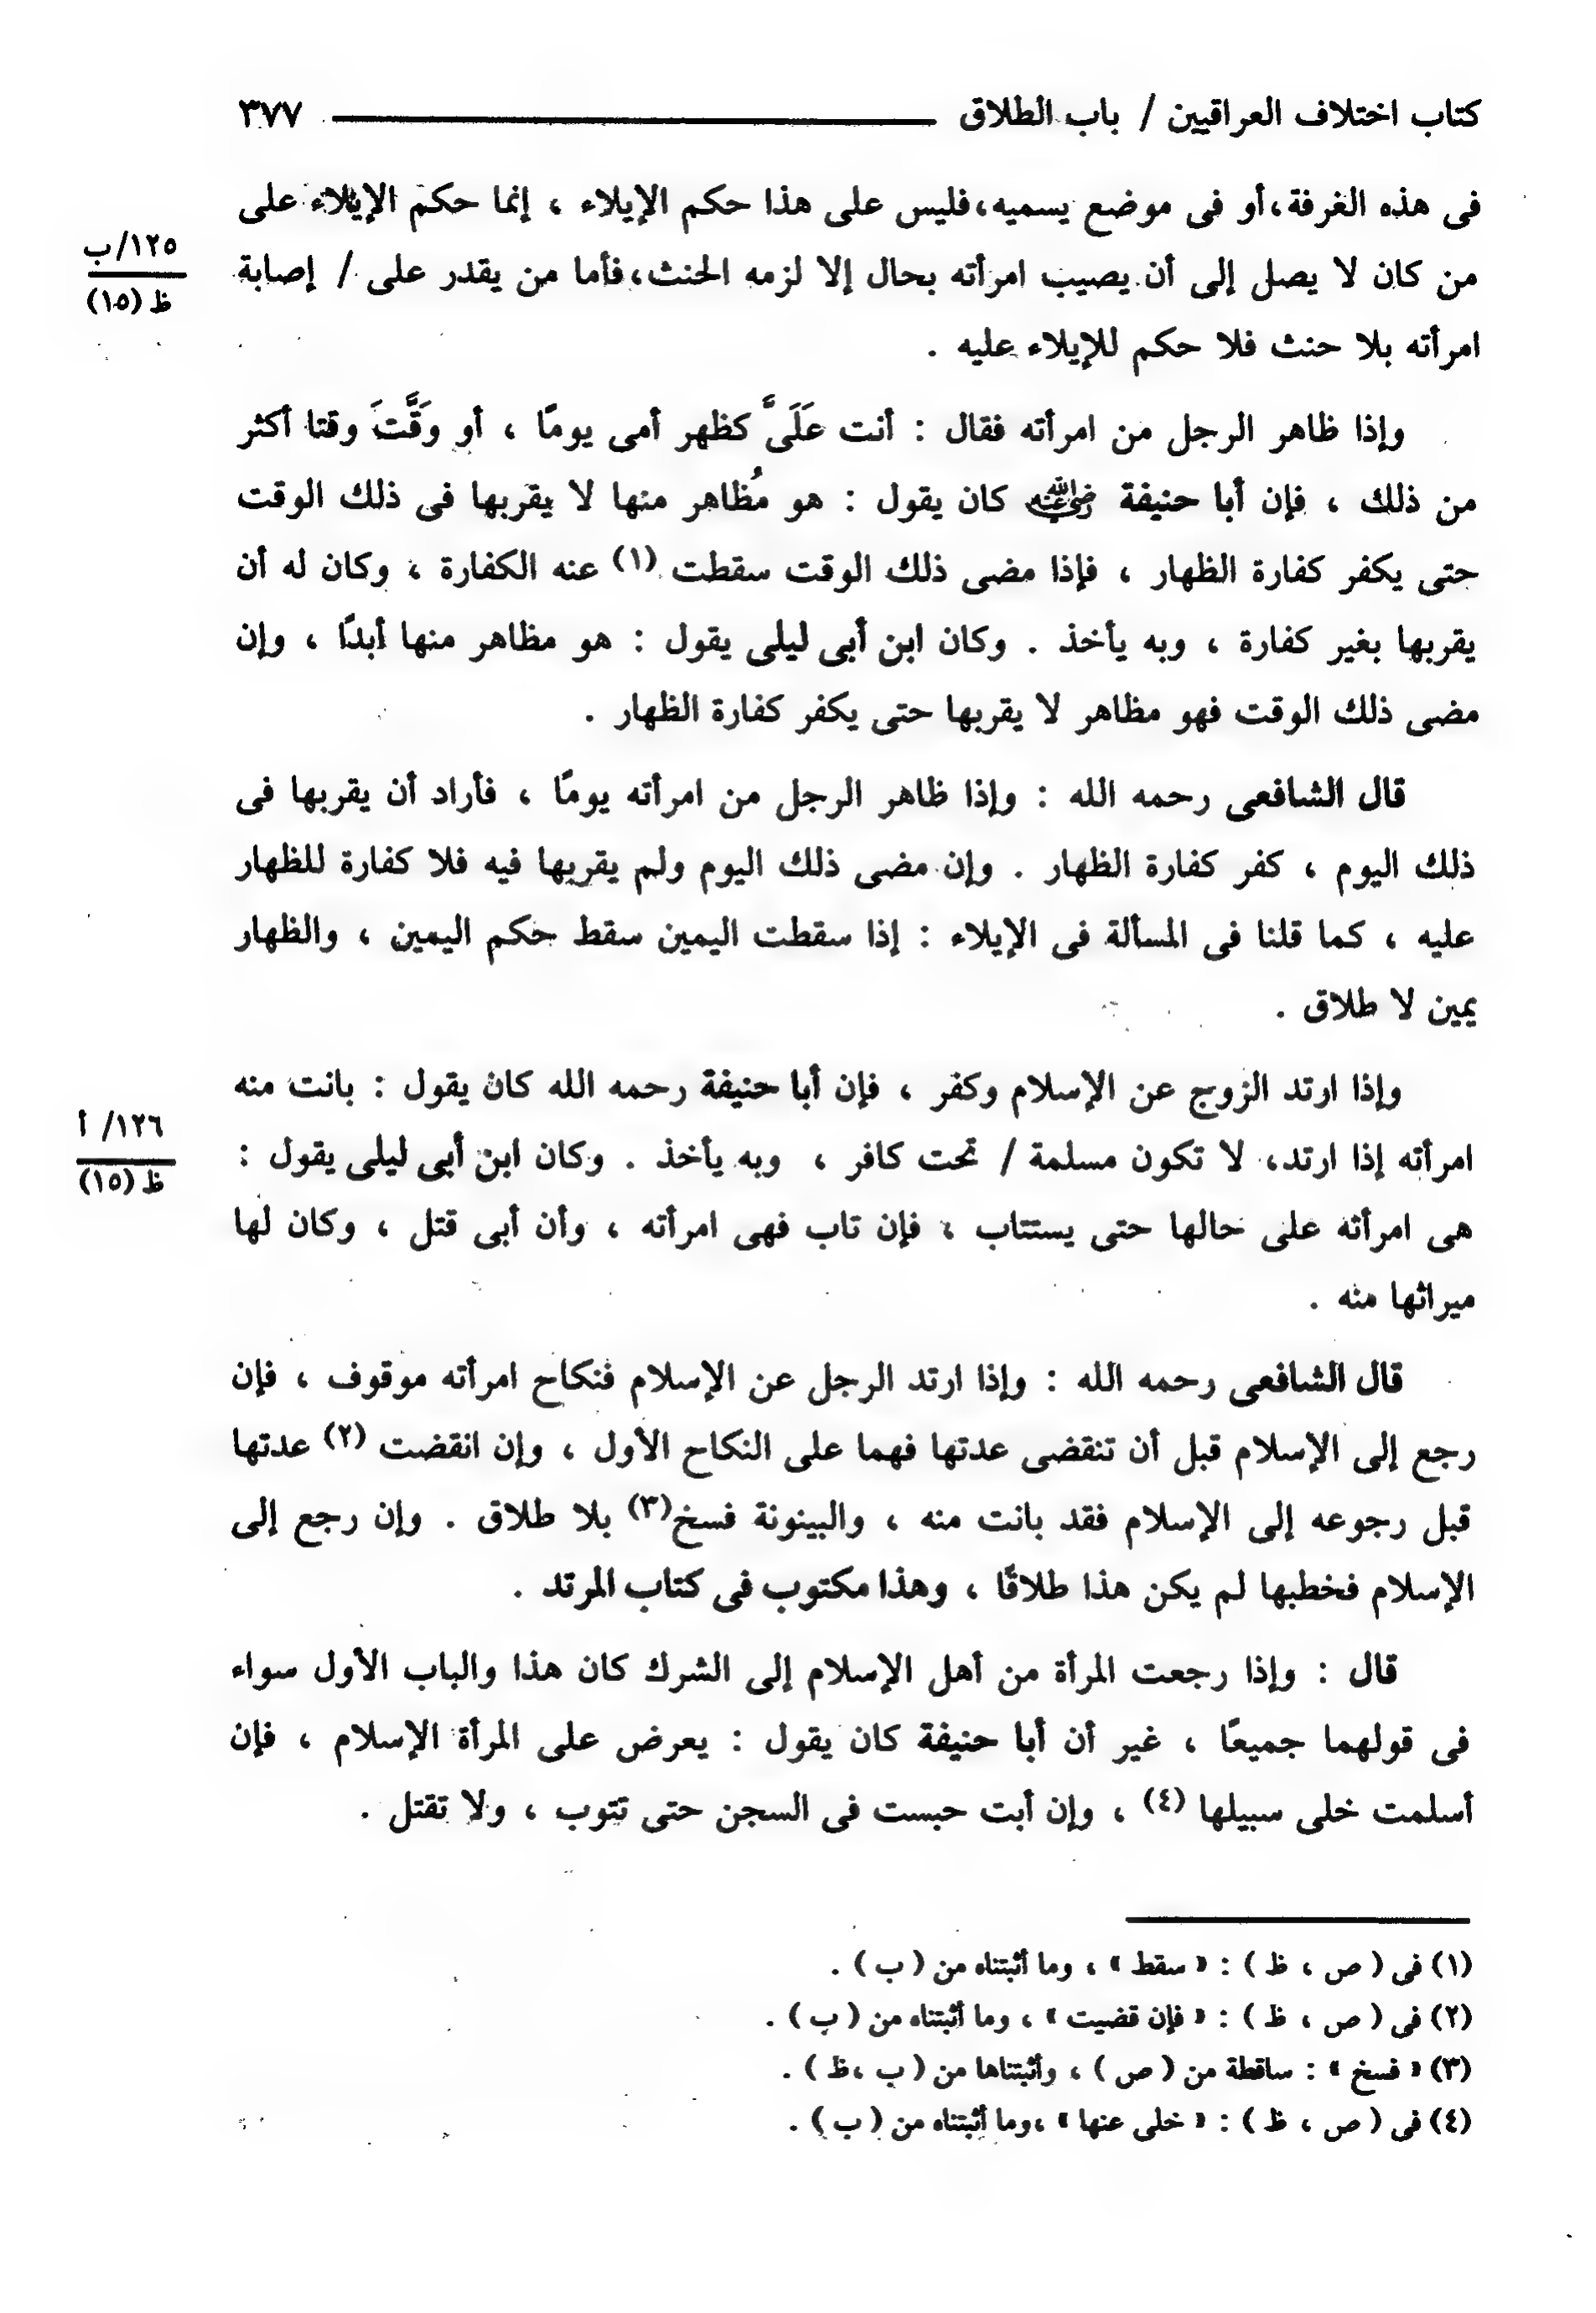 كتاب اختلاف العراقيين / باب الطلاق ٣٧٧
فى هذه الغرفة،أو فى موضع يسميه،فليس على هذا حكم الإيلاء ، إنما حكم الإيلاء على
١٢٥/ب
ظ (١٥)
من كان لا يصل إلى أن يصيب امرأته بحال إلا لزمه الحنث،فأما من يقدر على / إصابة
امرأته بلا حنث فلا حكم للإيلاء عليه .
وإذا ظاهر الرجل من امرأته فقال : أنت عَلَىَّ كظهر أمى يومًا ، أو وَقَّتَ وقتا أكثر
من ذلك ، فإن أبا حنيفة رضي الله عنه كان يقول : هو مُظاهر منها لا يقربها فى ذلك الوقت
حتى يكفر كفارة الظهار ، فإذا مضى ذلك الوقت سقطت (١) عنه الكفارة ، وكان له أن
يقربها بغير كفارة ، وبه يأخذ . وكان ابن أبى ليلى يقول : هو مظاهر منها أبدًا ، وإن
مضى ذلك الوقت فهو مظاهر لا يقربها حتى يكفر كفارة الظهار .
قال الشافعى رحمه الله : وإذا ظاهر الرجل من امرأته يومًا ، فأراد أن يقربها فى
ذلك اليوم ، كفر كفارة الظهار . وإن مضى ذلك اليوم ولم يقربها فيه فلا كفارة للظهار
عليه ، كما قلنا فى المسألة فى الإيلاء : إذا سقطت اليمين سقط حكم اليمين ، والظهار
يمين لا طلاق .
وإذا ارتد الزوج عن الإسلام وكفر ، فإن أبا حنيفة رحمه الله كان يقول : بانت منه
١٢٦/ أ
ظ (١٥)
امرأته إذا ارتد، لا تكون مسلمة / تحت كافر ، وبه يأخذ . وكان ابن أبى ليلى يقول :
هى امرأته على حالها حتى يستتاب ، فإن تاب فهى امرأته ، وأن أبى قتل ، وكان لها
ميراثها منه .
قال الشافعى رحمه الله : وإذا ارتد الرجل عن الإسلام فنكاح امرأته موقوف ، فإن
رجع إلى الإسلام قبل أن تنقضى عدتها فهما على النكاح الأول ، وإن انقضت (٢) عدتها
قبل رجوعه إلى الإسلام فقد بانت منه ، والبينونة فسخ(٣) بلا طلاق . وإن رجع إلى
الإسلام فخطبها لم يكن هذا طلاقًا ، وهذا مكتوب فى كتاب المرتد .
قال : وإذا رجعت المرأة من أهل الإسلام إلى الشرك كان هذا والباب الأول سواء
فى قولهما جميعًا ، غير أن أبا حنيفة كان يقول : يعرض على المرأة الإسلام ، فإن
أسلمت خلى سبيلها (٤) ، وإن أبت حبست فى السجن حتى تتوب ، ولا تقتل .
(١) فى ( ص ، ظ ) : « سقط » ، وما أثبتناه من ( ب ) .
(٢) فى ( ص ، ظ ) : « فإن قضيت » ، وما أثبتناه من ( ب ) .
(٣) « فسخ » : ساقطة من ( ص ) ، وأثبتناها من ( ب ،ظ ) .
(٤) فى ( ص ، ظ ) : « خلى عنها » ،وما أثبتناه من ( ب ) .